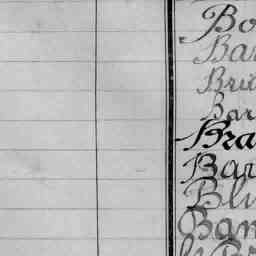 Bo
Bar
Brid
Bar
Bra
Bar
Bli
Ban
Br